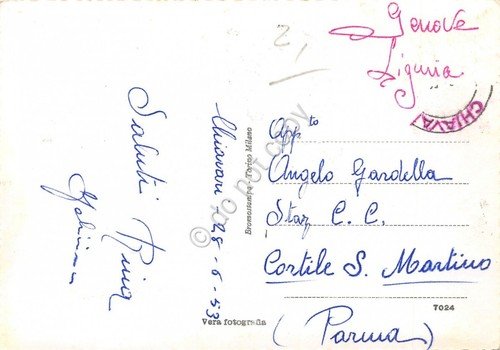 Genova
Liguria
CHIAVA
2,
Chiavari, 28-6-53
Saluti
Bromostampa - Torino Milano
do not copy
App to
Angelo Gardella
Staz C. C.
Cortile S. Martino
(Parma)
Vera fotografia
7024